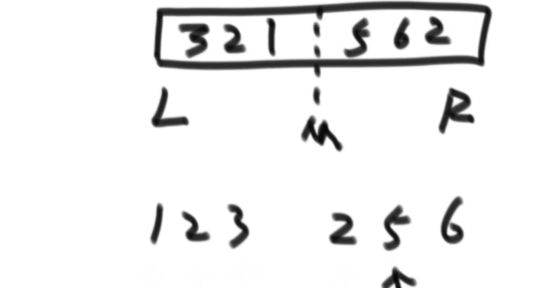 3 2 1 5 6 2
L M R
1 2 3 2 5 6